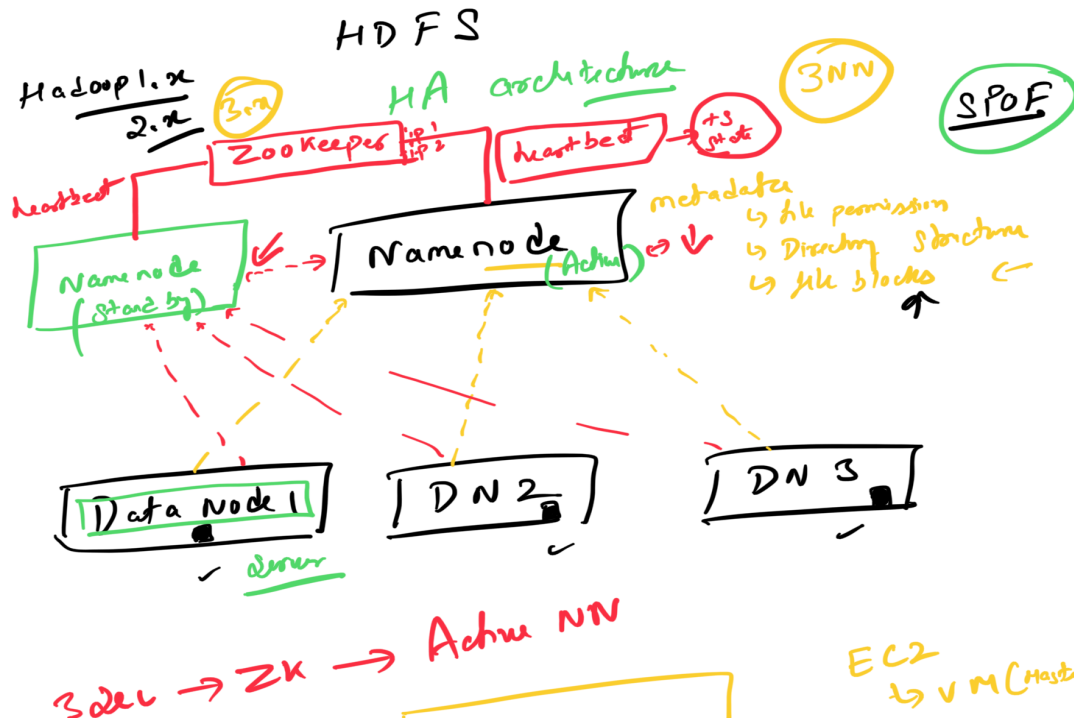 HDFS
Hadoop 1.x
2.x
3.x
HA architecture
3NN
SPOF
Zookeeper
ip 1
ip 2
heartbeat
+3
state
heartbeat
Namenode
(Stand by)
Namenode
(Active)
metadata
↳ file permission
↳ Directory Structure
↳ file blocks
Data Node 1
DN 2
DN 3
Server
3 sec → ZK → Active NN
EC2
↳ VM (Mast